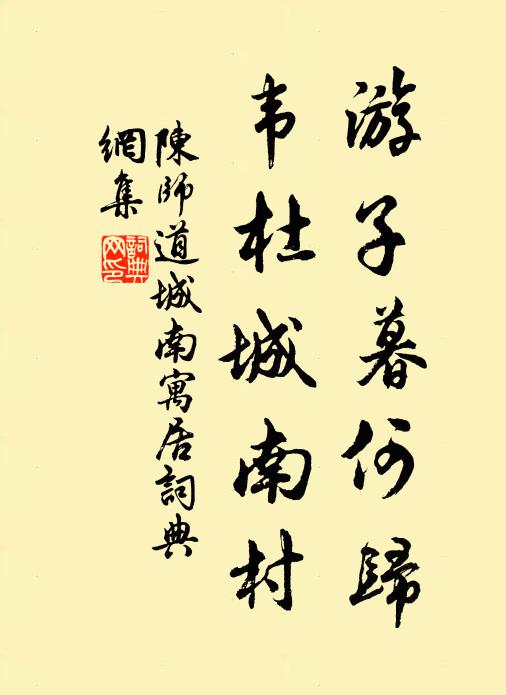 游子暮何歸
韦杜城南村
陳師道城南寓居詞典
網集
詞典
网印